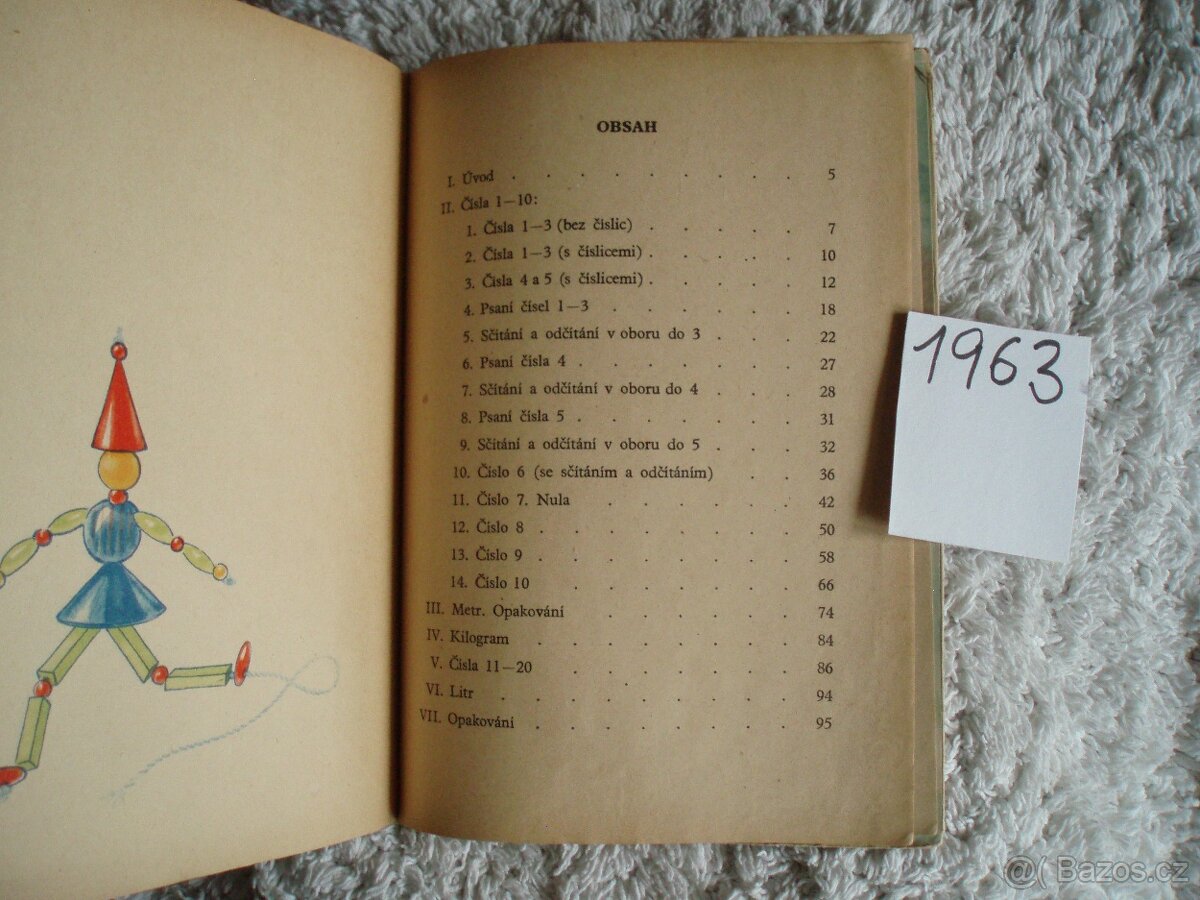 OBSAH
I. Úvod . . . . . . . . . 5
II. Čísla 1—10:
1. Čísla 1—3 (bez číslic) . . . . . . 7
2. Čísla 1—3 (s číslicemi) . . . . . . 10
3. Čísla 4 a 5 (s číslicemi) . . . . . . 12
4. Psaní čísel 1—3 . . . . . . 18
5. Sčítání a odčítání v oboru do 3 . . . 22
6. Psaní čísla 4 . . . . . . . 27
7. Sčítání a odčítání v oboru do 4 . . . 28
8. Psaní čísla 5 . . . . . . . 31
9. Sčítání a odčítání v oboru do 5 . . . 32
10. Číslo 6 (se sčítáním a odčítáním) . . 36
11. Číslo 7. Nula . . . . . . 42
12. Číslo 8 . . . . . . . . 50
13. Číslo 9 . . . . . . . . 58
14. Číslo 10 . . . . . . . 66
III. Metr. Opakování . . . . . . 74
IV. Kilogram . . . . . . . . 84
V. Čísla 11—20 . . . . . . . 86
VI. Litr . . . . . . . . . 94
VII. Opakování . . . . . . . . 95
1963
@( Bazos.cz